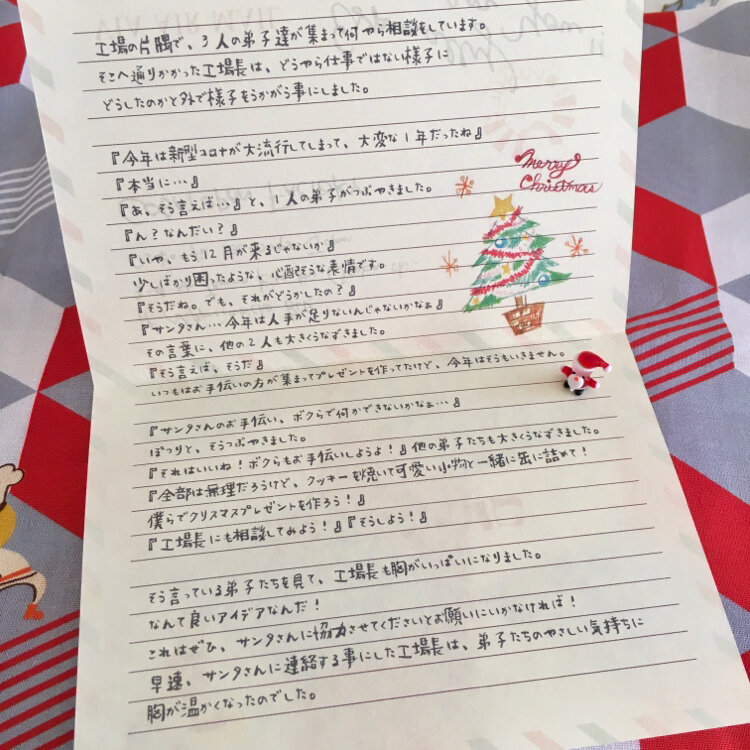 工場の片隅で、3人の弟子達が集まって何やら相談をしています。
そこへ通りかかった工場長は、どうやら仕事ではない様子に
どうしたのかと外で様子をうかがう事にしました。
『今年は新型コロナが大流行してしまって、大変な1年だったね』
『本当に…』
『あ、そう言えば…』と、1人の弟子がつぶやきました。
『ん?なんだい?』
『いや、もう12月が来るじゃないか』
少しばかり困ったような、心配そうな表情です。
『そうだね。でも、それがどうかしたの?』
『サンタさん…今年は人手が足りないんじゃないかなぁ』
その言葉に、他の2人も大きくうなずきました。
『そう言えば、そうだ』
いつもはお手伝いの方が集まってプレゼントを作ってたけど、今年はそうもいきません。
『サンタさんのお手伝い、ボクらで何かできないかなぁ…』
ぽつりと、そうつぶやきました。
『それはいいね!ボクらもお手伝いしようよ!』他の弟子たちも大きくうなずきました。
『全部は無理だろうけど、クッキーを焼いて可愛い小物と一緒に缶に詰めて!
僕らでクリスマスプレゼントを作ろう!』
『工場長にも相談してみよう!』『そうしよう!』
そう言っている弟子たちを見て、工場長も胸がいっぱいになりました。
なんて良いアイデアなんだ!
これはぜひ、サンタさんに協力させてくださいとお願いにいかなければ!
早速、サンタさんに連絡する事にした工場長は、弟子たちのやさしい気持ちに
胸が温かくなったのでした。
Merry
Christmas